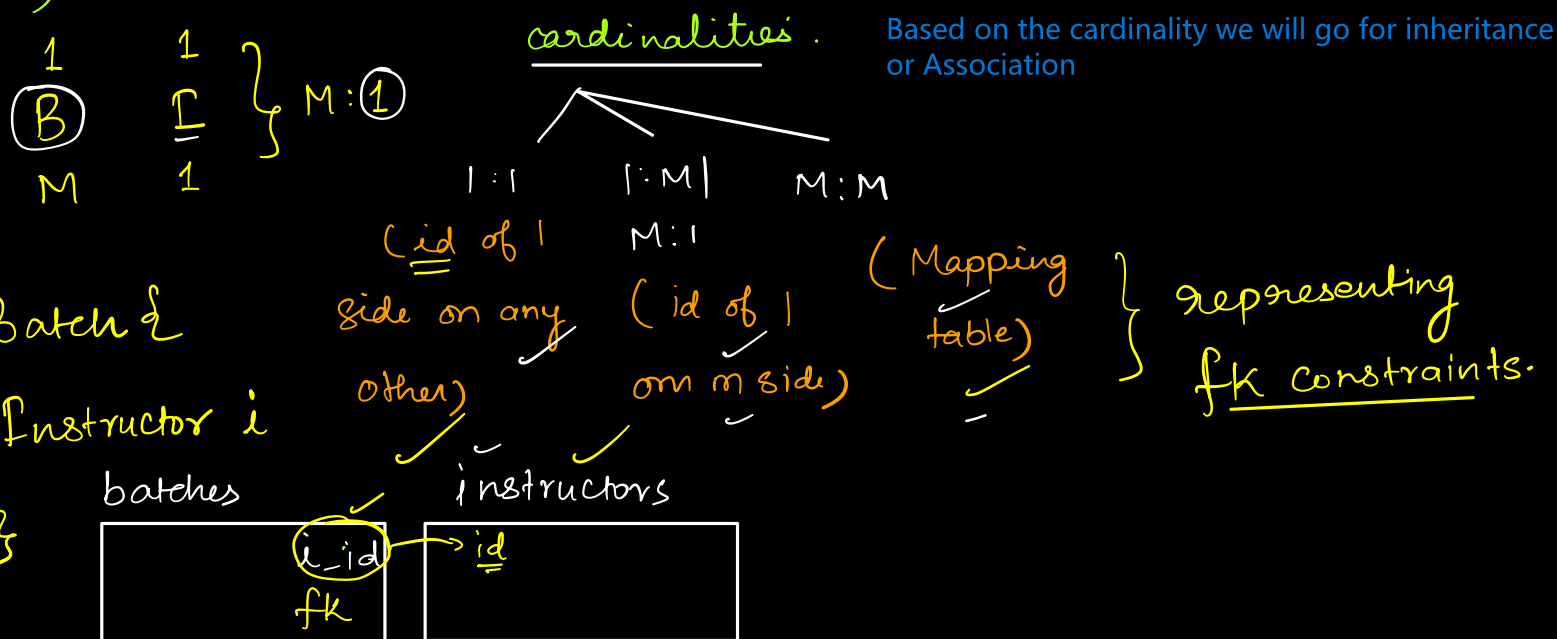 1 1
B I } M : 1
M 1
cardinalities .
Based on the cardinality we will go for inheritance
or Association
1:1 1:M M:M
M:1
(id of 1
side on any
other)
(id of 1
on m side)
(Mapping
table)
} representing
fk constraints.
Batch {
Instructor i
}
batches instructors
i_id id
fk